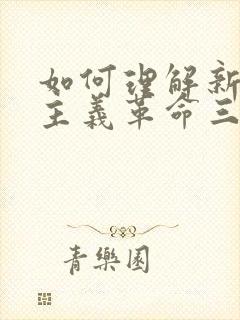 如何理解新
主義革命三
青樂園